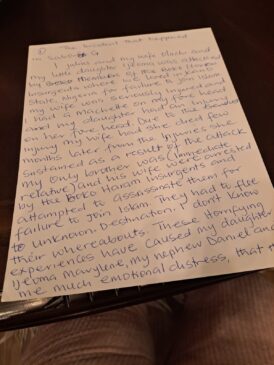 ① The Incident that happened
my wife and
my little daughter Ijeoma was attacked
by members of the Boko Haram
Insurgents where we lived in
State, Nigeria for failure to join Islam
my wife was seriously Injured and
I had a machette on my fore head
and my daughter had an Injury
on her fore head. Due to the
injury my wife had she died few
months later from the injuries she
sustained as a result of the attack
my only brother was (Immediate
relative) and his wife were arrested
by the Boko Haram Insurgents and
attempted to assassinate them for
failure to Join Islam. They had to flee
to unknown. Destination, I don't know
their whereabouts. These Horrifying
experiences have caused my daughter
Ijeoma Marylene, my nephew Daniel and
me much emotional distress, that